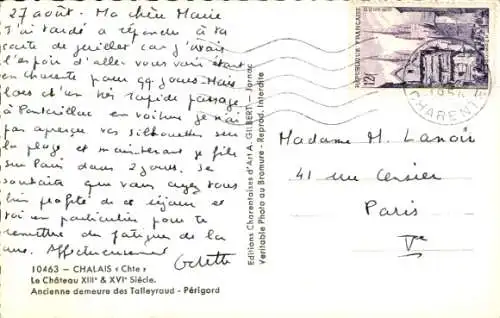 27 août. Ma chère Marie
J'ai tardé à répondre à ta
carte de juillet car j'avais
l'espoir d'aller vous voir étant
en charente pour qq jours. Mais
lors d'un très rapide passage
à Pontaillac en voiture je n'ai
pas aperçu vos silhouettes sur
la plage et maintenant je file
sur Paris dans 2 jours. Je
souhaite que vous ayez tous
bien profité de ce séjour et
toi en particulier pour te
remettre des fatigues de la
Affectueusement
Odette
10463 - CHALAIS « Chte »
Le Château XIIIe & XVIe Siècle.
Ancienne demeure des Talleyraud - Périgord
Editions Charentaises d'Art A. GILBERT - Jarnac
Veritable Photo au Bromure - Reprod. Interdite
REPUBLIQUE FRANÇAISE
12F
QUIMPER
CHARENTE
Madame M. Lanoir
41 rue Censier
Paris
Ve